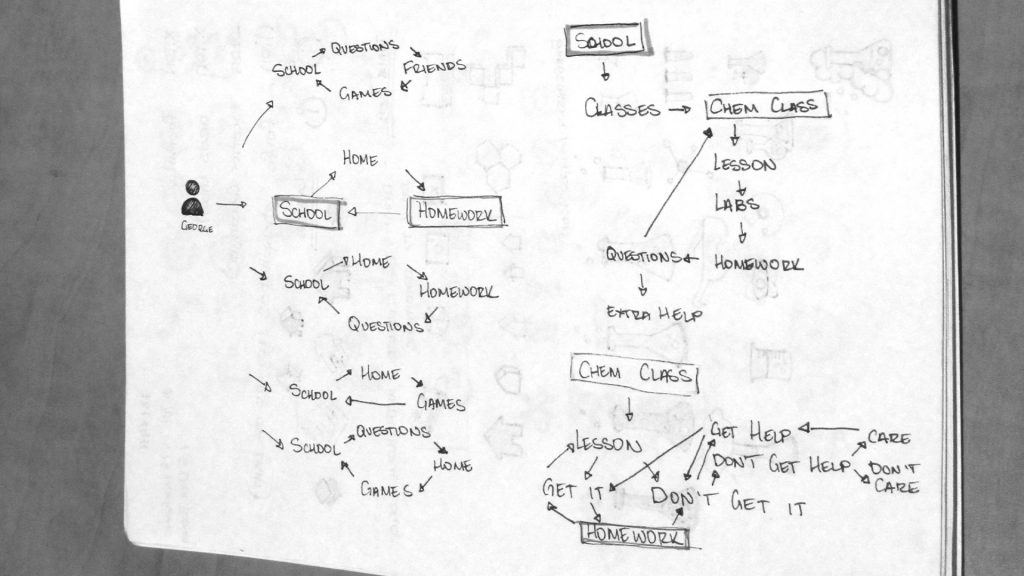 QUESTIONS
SCHOOL
FRIENDS
GAMES
HOME
GEORGE
SCHOOL
HOMEWORK
HOME
SCHOOL
HOMEWORK
QUESTIONS
HOME
SCHOOL
GAMES
QUESTIONS
SCHOOL
HOME
GAMES
SCHOOL
CLASSES
CHEM CLASS
LESSON
LABS
QUESTIONS
HOMEWORK
EXTRA HELP
CHEM CLASS
LESSON
GET HELP
CARE
DON'T GET HELP
DON'T
CARE
GET IT
DON'T GET IT
HOMEWORK